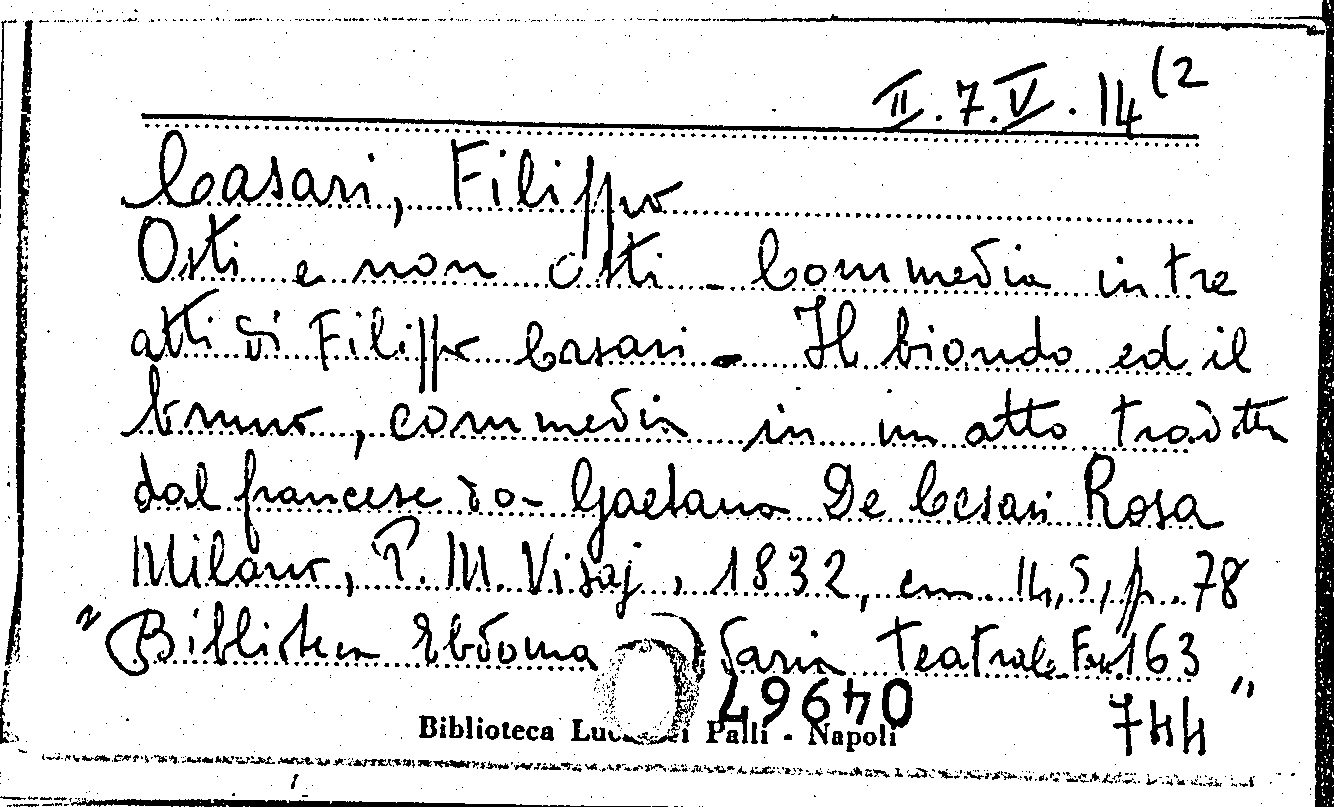 II.7.V.14(2
Casari, Filippo
Osti e non Osti - Commedia in tre
atti di Filippo Casari - Il biondo ed il
bruno, commedia in un atto tradotta
dal francese da Gaetano De Cesari Rosa
Milano, P. M. Visaj, 1832, cm. 14,5, p. 78
"Biblioteca Ebdomadaria Teatrale Fasc. 163"
04967
744
Biblioteca Lucchesi Palli - Napoli